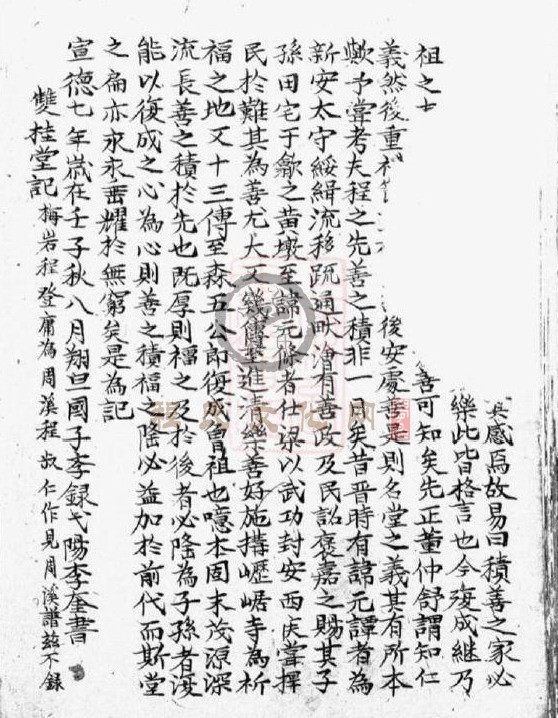 感焉故易曰積善之家必
樂此皆格言也今復成繼乃
善可知矣先正董仲舒謂知仁
祖之士
義然後重 後安處善是則名堂之義其有所本
歟予嘗考夫程之先善之積非一日矣昔晉時有諱元譚者為
新安太守綏緝流移疏通畎澮有善政及民詔褒嘉之賜其子
孫田宅于歙之黃墩至諱元條者仕梁以武功封安西侯嘗捍
民於難其為善尤大又幾傳至進清樂善好施搆崌寺為析
福之地又十三傳至森五公即復成曾祖也噫本固末茂源深
流長善之積於先也既厚則福之及於後者必隆為子孫者復
能以復成之心為心則善之積福之隆必益加於前代而斯堂
之扁亦永永垂耀於無窮矣是為記
宣德七年歲在壬子秋八月翔旦國子李錄弋陽李奎書
雙桂堂記 梅岩程登庸為周溪程叔仁作見周溪譜茲不錄